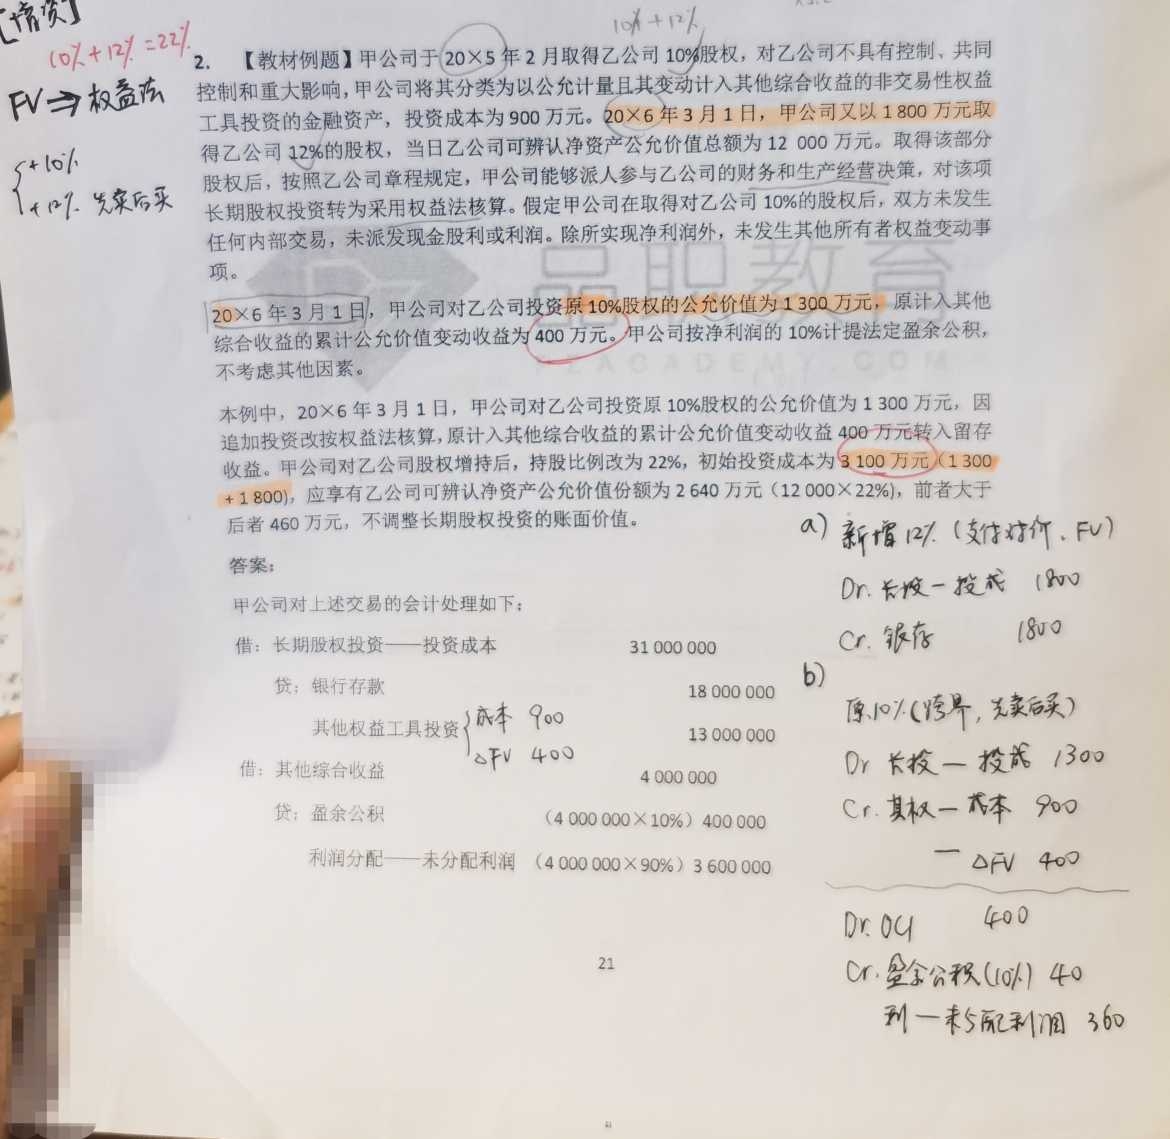 [增资]
10%+12%=22%
FV⇒权益法
+10%
+12% 先卖后买
10%+12%
2. 【教材例题】甲公司于 20×5 年 2 月取得乙公司 10%股权，对乙公司不具有控制、共同
控制和重大影响，甲公司将其分类为以公允计量且其变动计入其他综合收益的非交易性权益
工具投资的金融资产，投资成本为 900 万元。20×6 年 3 月 1 日，甲公司又以 1 800 万元取
得乙公司 12%的股权，当日乙公司可辨认净资产公允价值总额为 12 000 万元。取得该部分
股权后，按照乙公司章程规定，甲公司能够派人参与乙公司的财务和生产经营决策，对该项
长期股权投资转为采用权益法核算。假定甲公司在取得对乙公司 10%的股权后，双方未发生
任何内部交易，未派发现金股利或利润。除所实现净利润外，未发生其他所有者权益变动事
项。
品职教育
PZACADEMY.COM
20×6 年 3 月 1 日，甲公司对乙公司投资原 10%股权的公允价值为 1 300 万元，原计入其他
综合收益的累计公允价值变动收益为 400 万元。甲公司按净利润的 10%计提法定盈余公积，
不考虑其他因素。
本例中，20×6 年 3 月 1 日，甲公司对乙公司投资原 10%股权的公允价值为 1 300 万元，因
追加投资改按权益法核算，原计入其他综合收益的累计公允价值变动收益 400 万元转入留存
收益。甲公司对乙公司股权增持后，持股比例改为 22%，初始投资成本为 3 100 万元（1 300
+1 800)，应享有乙公司可辨认净资产公允价值份额为 2 640 万元（12 000×22%)，前者大于
后者 460 万元，不调整长期股权投资的账面价值。
答案：
甲公司对上述交易的会计处理如下：
借：长期股权投资——投资成本 31 000 000
贷：银行存款 18 000 000
其他权益工具投资 13 000 000
成本 900
△FV 400
借：其他综合收益 4 000 000
贷：盈余公积 （4 000 000×10%）400 000
利润分配——未分配利润 （4 000 000×90%）3 600 000
a) 新增12%（支付对价、FV）
Dr. 长投－投成 1800
Cr. 银存 1800
b)
原10%（跨界，先卖后买）
Dr 长投－投成 1300
Cr. 其权－成本 900
－△FV 400
Dr. OCI 400
Cr. 盈余公积(10%) 40
利－未分配利润 360
21